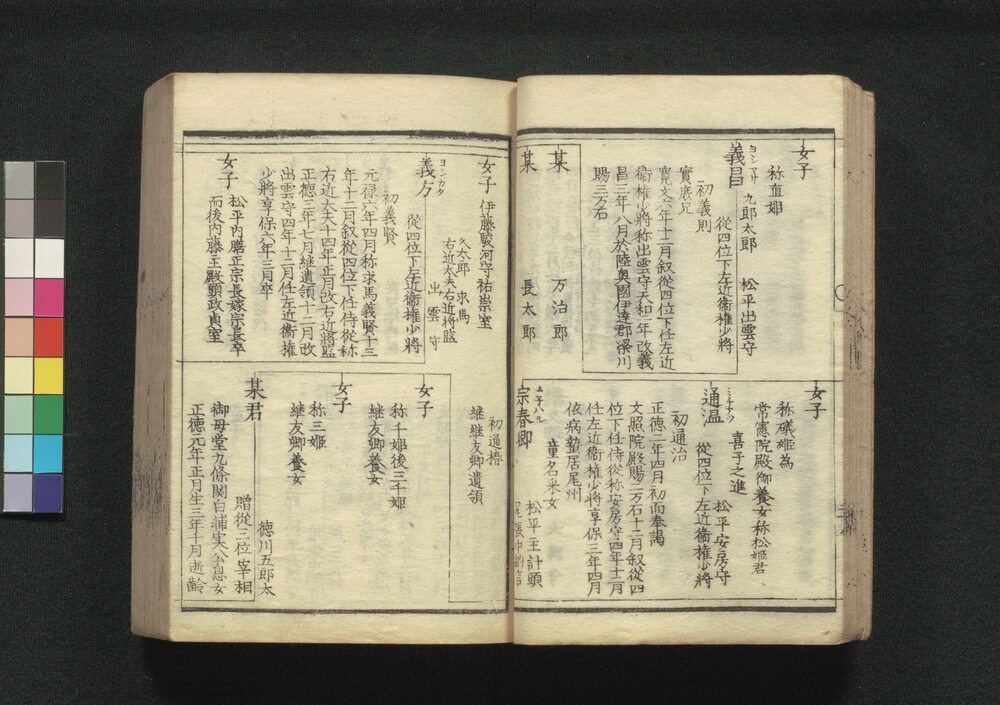 女子
称直姫
義昌
ヨシマサ
九郎太郎
松平出雲守
從四位下左近衛権少将
初義則
實庶兄
寛文六年十二月叙從四位下任左近
衛権少将称出雲守天和二年改義
昌三年八月於陸奥國伊達郡梁川
賜三万石
某
万治郎
某
長太郎
女子
称礒姫為
常憲院殿御養女称松姫君
通温
喜子之進
松平安房守
從四位下左近衛権少将
初通治
正徳三年四月初而奉謁
文照院殿賜三万石十二月叙從四
位下任侍従称安房守四年十二月
任左近衛権少将享保三年四月
依病蟄居尾州
宗春卿
ムネハル
童名采女
松平主計頭
女子
伊藤駿河守祐崇室
義方
ヨシカタ
久太郎
求馬
右近太夫右近将監
出雲守
從四位下左近衛権少将
初義賢
元禄六年四月称求馬義賢十三
年十二月叙從四位下任侍從称
右近太夫十四年正月改右近将監
正徳三年七月継遺領十二月改
出雲守四年十二月任左近衛権
少将享保六年三月卒
女子
松平内膳正宗長嫁宗長卒
而後内藤主殿頭政貞室
初通春
継継友卿遺領
女子
称千姫後三千姫
継友卿養女
女子
称三姫
継友卿養女
某君
徳川五郎太
贈從三位宰相
御母堂九條関白浦実公息女
正徳元年正月生三年十月逝齢